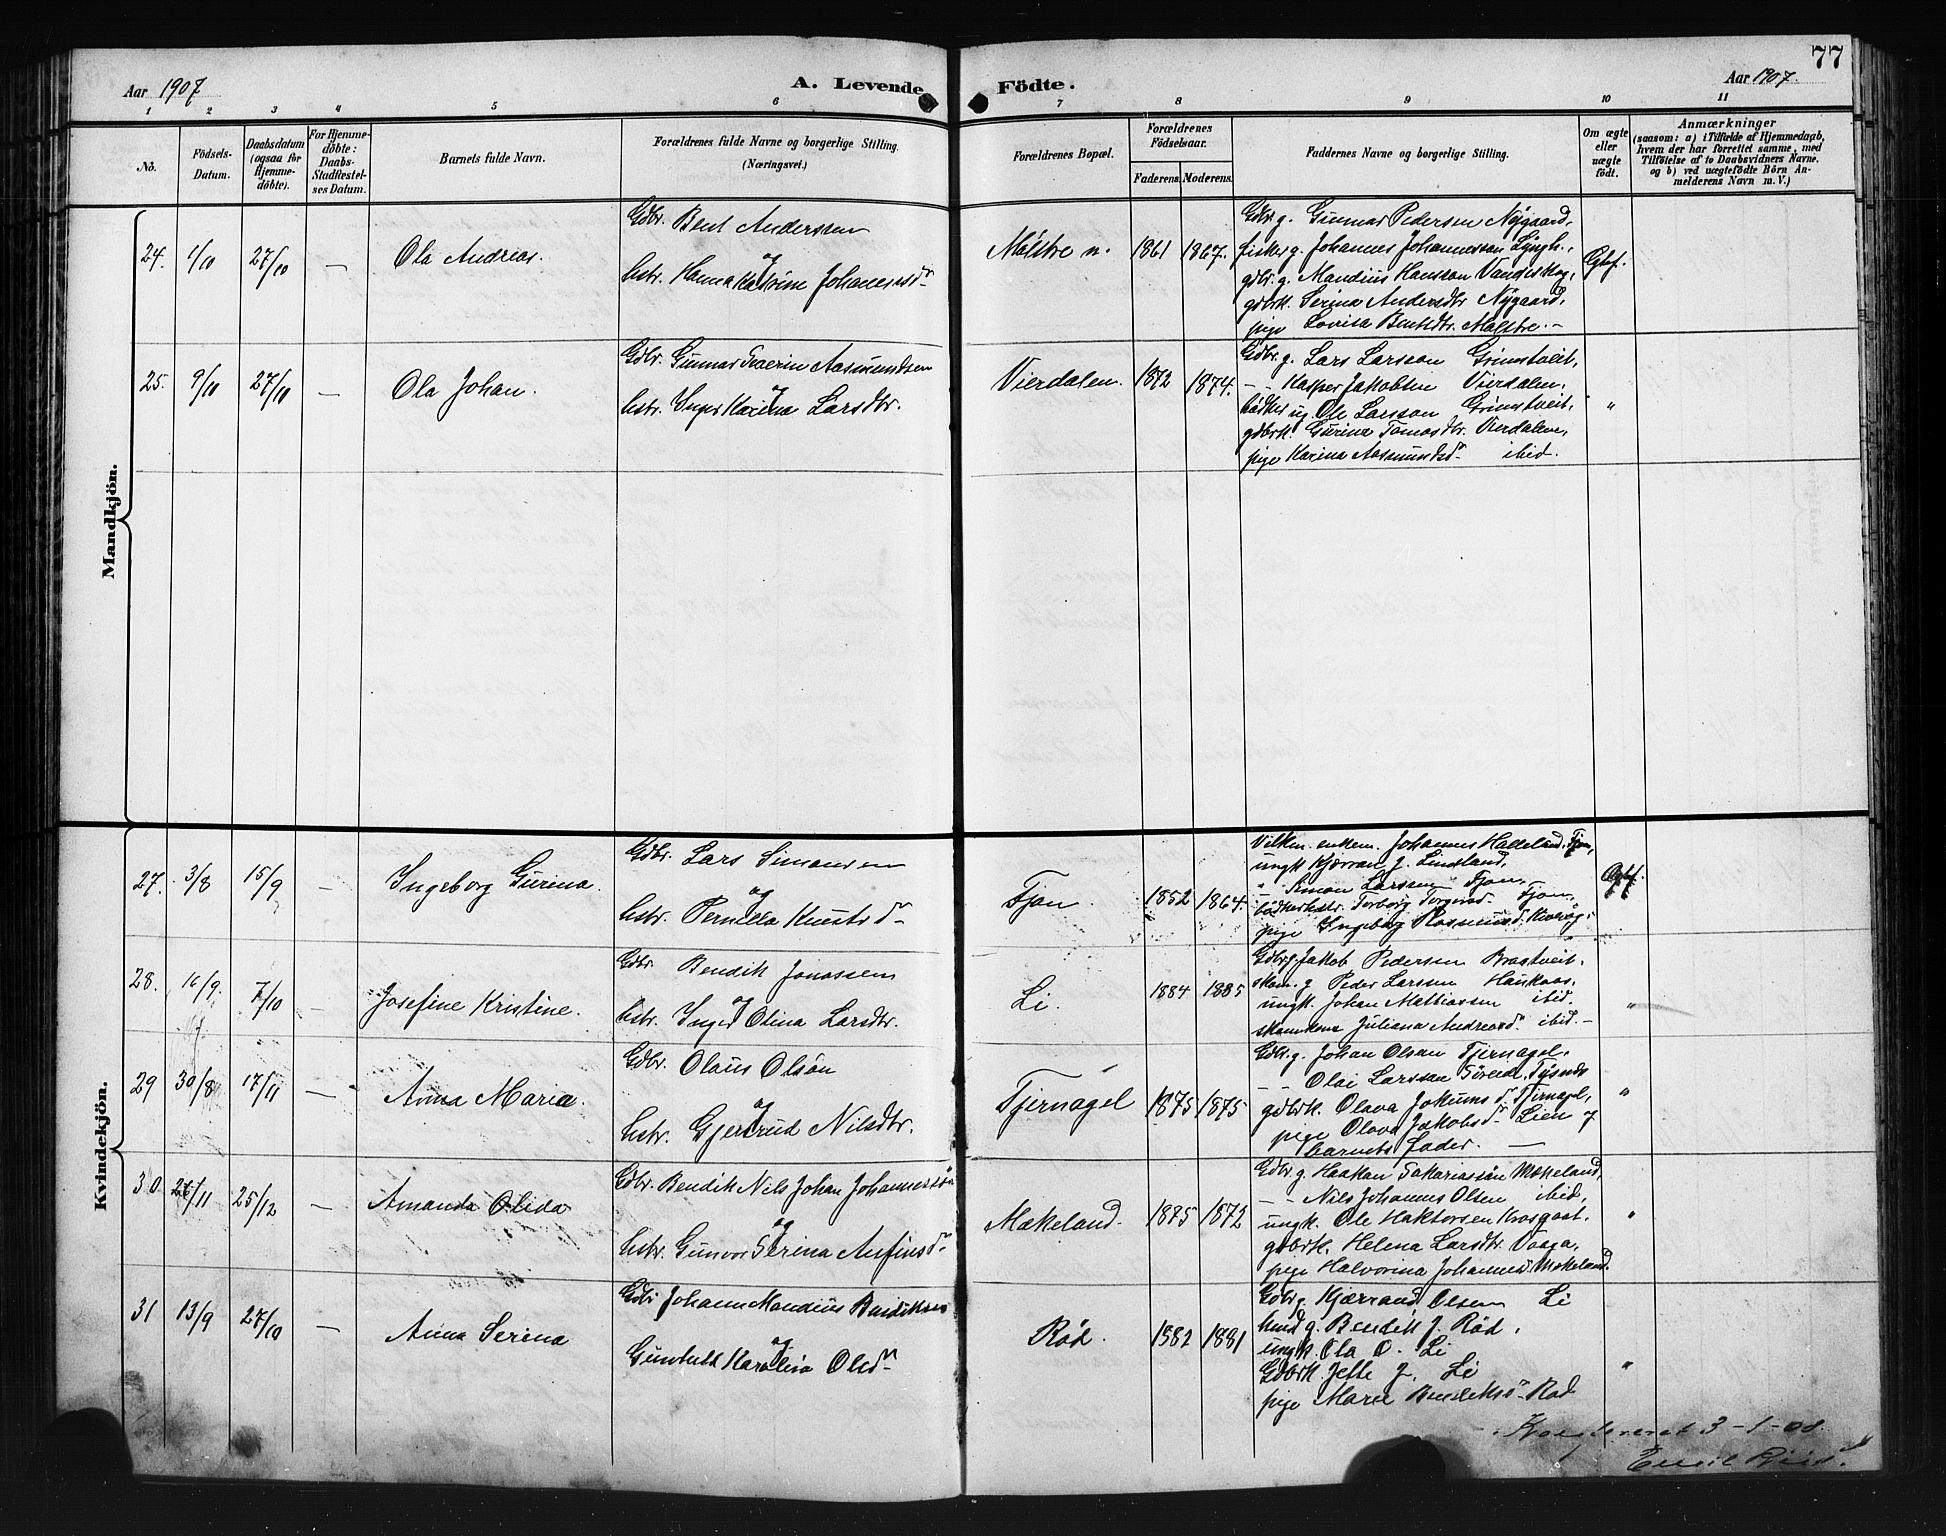 77
Aar 1907
A. Levende
Födte.
Aar 1907.
1 2 3 4 5 6 7 8 9 10 11
No.
Födsels-
Datum.
Daabsdatum
(ogsaa for
Hjemme-
döbte).
For Hjemme-
döbte:
Daabs-
Stadfæstel-
ses Datum.
Barnets fulde Navn.
Forældrenes fulde Navne og borgerlige Stilling.
(Næringsvei.)
Forældrenes Bopæl.
Forældrenes
Födselsaar.
Faderens.
Moderens.
Faddernes Navne og borgerlige Stilling.
Om ægte
eller
uægte
födt.
Anmærkninger
(saasom: a) i Tilfælde af Hjemmedaab,
hvem der har forrettet samme, med
Tilföielse af to Daabsvidners Navne.
og b) ved uægtefödte Börn An-
melderens Navn m. V.)
Mandkjön.
24. 1/10 27/10 — Ola Andreas.
Gdbr. Bent Anderssen
og
hstr. Hanna Katrine Johannesdr
Målstre n. 1861 1867.
Gdbr g. Gunnar Pedersen Nygaard,
fisker g. Johannes Johannessen Lyngh.,
gdbr. g. Mandius Hansson Vandeskog,
gdbrk. Serina Andersdtr Nygaard,
pige Lovisa Bentsdtr. Målstre. —
Egtef.
25. 9/10 27/10 — Ola Johan.
Gdbr. Gunnar Severin Aasmundsen
og
hstr. Inger Karina Larsdtr.
Vierdalen. 1872 1874.
Gdbr. g. Lars Larsson Grimstveit,
— - Kasper Jakobsen Vierdalen,
bödker ug. Ole Larsson Grimstveit,
gdbrk. Gurina Tomasdtr. Vierdalen,
pige Karina Aasmundsd. ibid.
"
Kvindekjön.
27. 3/8 15/9 — Ingeborg Gurina.
Gdbr. Lars Simonsen
og
hstr. Pernilla Knutsdr
Fjon. 1852 1864.
enkem. Johannes Halleland, Fjon,
ungk Kjærran J. Lindland,
" Simon Larssen Fjon,
bödkerhstr. Torborg Torgersd. Fjon,
pige Ingeborg Rasmusd.
Egtf.
28. 16/9. 7/10 — Josefine Kristine.
Gdbr. Bendik Jonassen
og
hstr. Inger Olina Larsdtr.
Li. 1884 1885
Gdbrg Jakob Pedersen Brastveit.
skom. g Peder Larssen Haukaas,
ungk. Johan Mathiassen ibid.
Juliana Andreasd. ibid. —
"
29 30/8 17/11 — Anna Maria.
Gdbr. Olaus Olsön
og
hstr. Gjertrud Nilsdtr.
Tjernagel 1875 1875
Gdbr. g. Johan Olsen Tjernagel.
— - Olai Larsson Töreid, Tysnes
gdbrk. Olava Jokumsdr Tjernagel,
pige Olava Jakobsdr Lien og
barnets fader. —
"
30 26/11 25/12 — Amanda Olida
Gdbr. Bendik Nils Johan Johannessön
og
hstr. Gunvor Serina Anfinsdr
Mækeland. 1875 1872
Gdbr g. Haakan Sakariassön Mækeland,
— - Nils Johannes Olsen ibid,
ungk. Ole Haktorsen Krosgaat.
gdbrk. Helena Larsdtr. Vaaga,
pige Halvorina Johannesd. Mækeland.
"
31 13/9 27/10 — Anna Serina
Gdbr Johann Mandius Bendiksen
og
Gunhild Karolina Olsdr
Röd. 1882 1881
Gdbr g. Kjærrand Olsen Li
g. Bendik J. Röd,
ungk. Ola O. Li
Gdbrk. Jette J. Li
pige Marie Bendiksdr Röd
3-1-08.